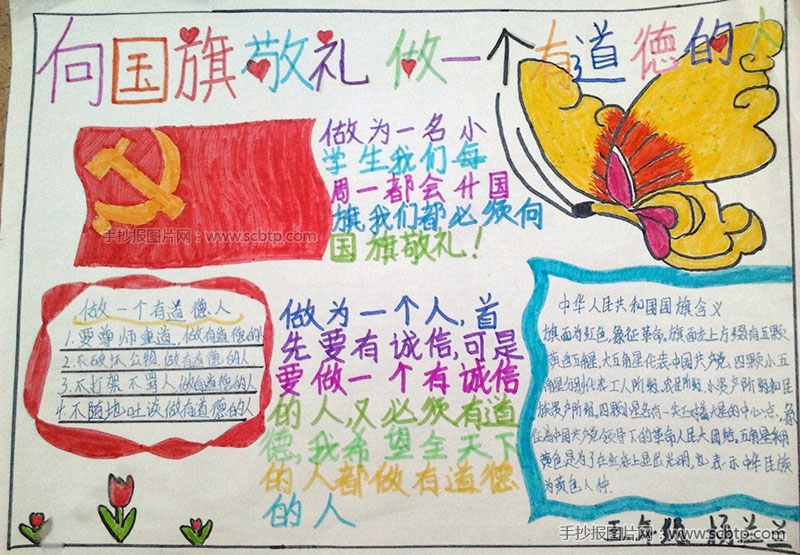 向国旗敬礼 做一个有道德的人
做为一名小
学生我们每
周一都会升国
旗,我们都必须向
国旗敬礼!
手抄报图片网:www.scbtp.com
做一个有道德人
1.要尊师重道,做有道德的人
2.不破坏公物做有道德的人
3.不打架不骂人做有道德的人
4.不随地吐谈做有道德的人
做为一个人,首
先要有诚信,可是
要做一个有诚信
的人,又必须有道
德,我希望全天下
的人都做有道德
的人
中华人民共和国国旗含义
旗面为红色,象征革命。旗面左上方缀有五颗
黄色五角星,大五角星代表中国共产党,四颗小五
角星分别代表工人阶级、农民阶级、小资产阶级和民
族资产阶级。四颗小星各有一尖正对着大星的中心点,象
征着中国共产党领导下的革命人民大团结。五角星采用
黄色是为了在红底上显出光明,也表示中华民族
为黄色人种.
手抄报图片网:www.scbtp.com
五年级
手抄报图片网:www.scbtp.com